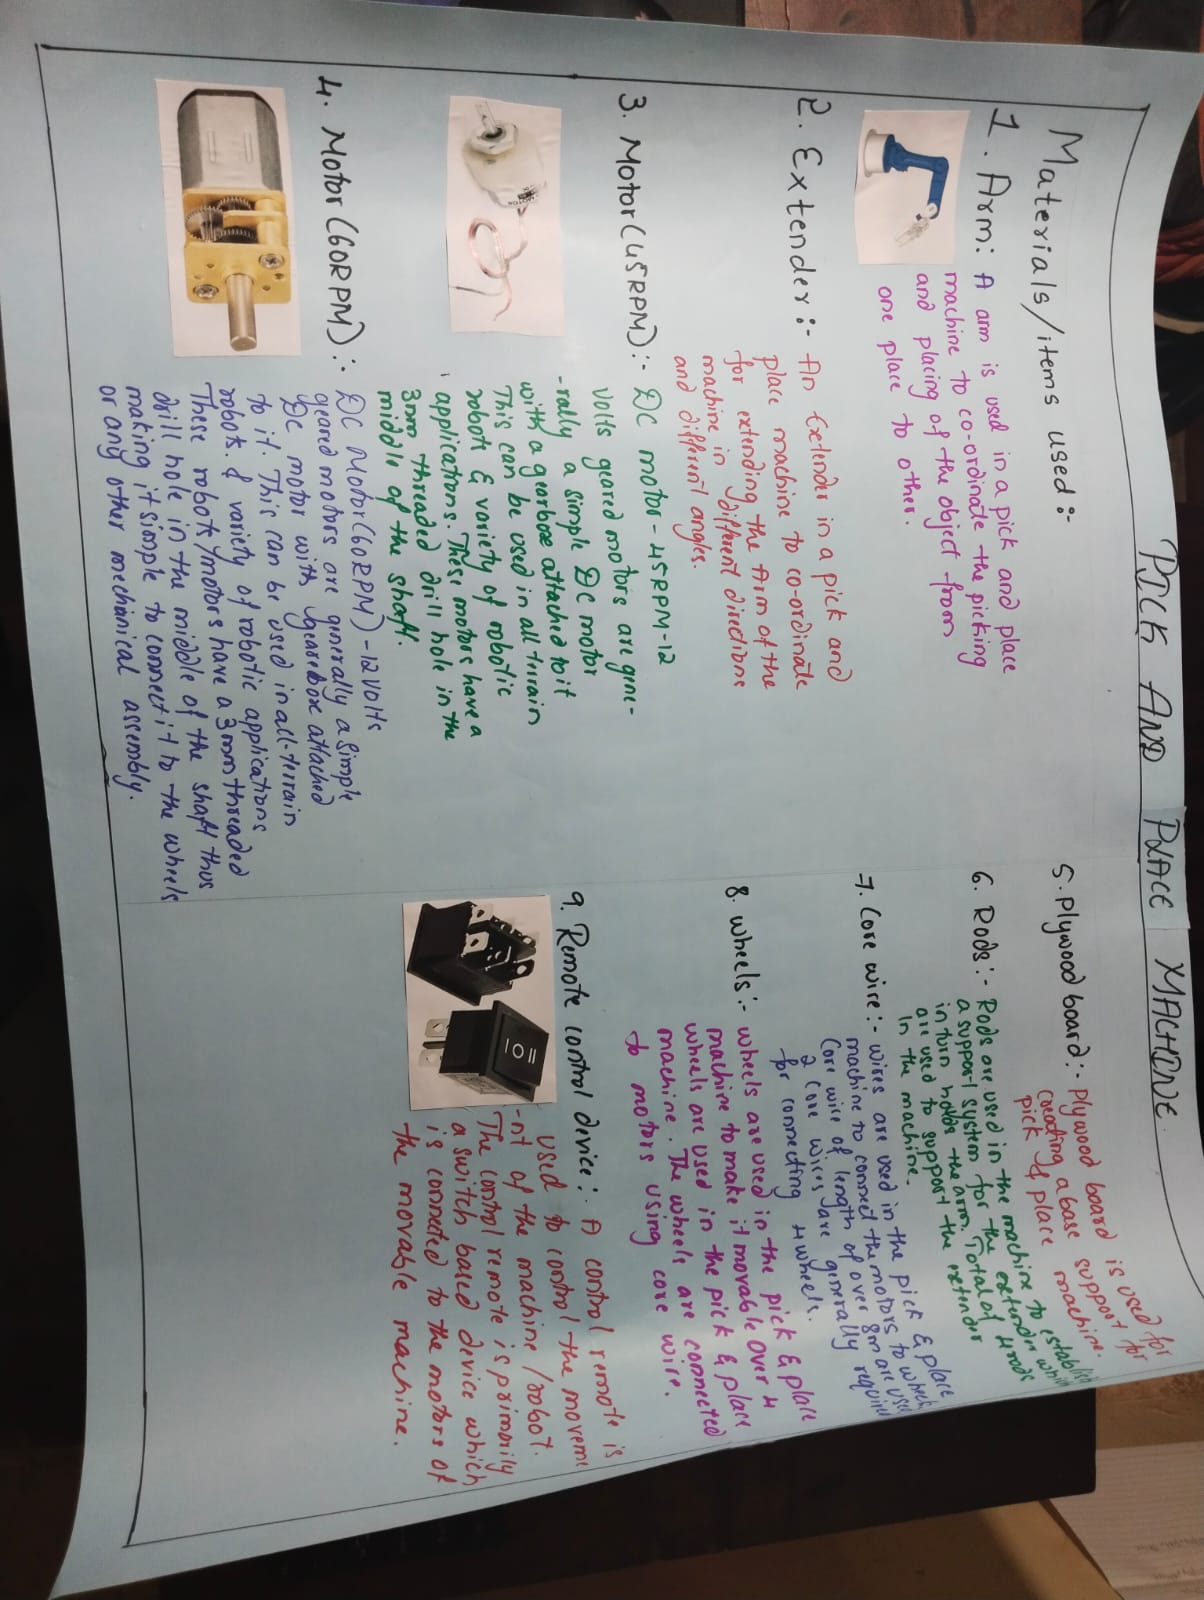 PICK AND PLACE MACHINE
Materials/items used:-
1. Arm: A arm is used in a pick and place
machine to co-ordinate the picking
and placing of the object from
one place to other.
2. Extender:- An Extender in a pick and
place machine to co-ordinate
for extending the Arm of the
machine in different directions
and different angles.
3. Motor(45RPM):- DC motor - 45RPM-12
Volts geared motors are gine-
-rally a simple DC motor
with a gearbox attached to it
This can be used in all-terrain
robots & variety of robotic
applications. These motors have a
3mm threaded drill hole in the
middle of the shaft.
4. Motor(60RPM):-
DC Motor(60RPM)-12Volts
geared motors are generally a simple
DC motor with gearbox attached
to it. This can be used in all-terrain
robots & variety of robotic applications
These robots/motors have a 3mm threaded
drill hole in the middle of the shaft thus
making it simple to connect it to the wheels
or any other mechanical assembly.
5. Plywood board:- Plywood board is used for
creating a base support for
pick & place machine.
6. Rods:- Rods are used in the machine to establish
a support system for the extender which
in turn holds the arm. Total of 4 rods
are used to support the extender
in the machine.
7. Core wire:- wires are used in the pick & place
machine to connect the motors to wheels
Core wire of length of over 8m are used
2 core wires are generally required
for connecting 4 wheels.
8. wheels:- wheels are used in the pick & place
machine to make it movable Over 4
wheels are used in the pick & place
machine. The wheels are connected
to motors using core wire.
9. Remote control device:- A control remote is
used to control the moveme
-nt of the machine/robot.
The control remote is primarily
a switch based device which
is connected to the motors of
the movable machine.